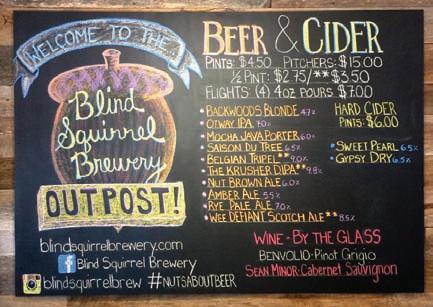 WELCOME TO THE
Blind
Squirrel
Brewery
OUTPOST!
blindsquirrelbrewery.com
Blind Squirrel Brewery
blindsquirrelbrew #NUTSABOUTBEER
BEER & CIDER
PINTS: $4.50 PITCHERS: $15.00
½ PINT: $2.75/**$3.50
FLIGHTS: (4) 4oz POURS $7.00
• BACKWOODS BLONDE 4.7%
• OTWAY IPA 7.0%
• MOCHA JAVA PORTER 6.0%
• SAISON DU TREE 6.5%
• BELGIAN TRIPEL** 9.0%
• THE KRUSHER DIPA** 9.8%
• NUT BROWN ALE 6.0%
• AMBER ALE 5.5%
• RYE PALE ALE 7.0%
• WEE DEFIANT SCOTCH ALE** 8.5%
HARD CIDER
PINTS: $6.00
• SWEET PEARL 6.5%
• GYPSY DRY 6.5%
WINE - BY THE GLASS
BENVOLIO - Pinot Grigio
SEAN MINOR - Cabernet Sauvignon